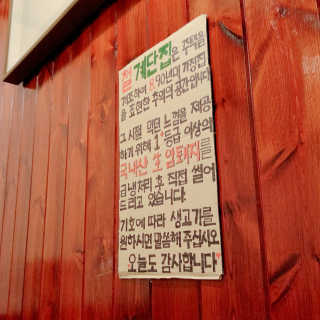 철계단집은 추억을
기조하여 8,90년대 가정집
을 표현한 추억의 공간입니다
그 시절 먹던 느낌을 제공
하기 위해 1+등급 이상의
국내산 생 암퇘지를
급냉처리 후 직접 썰어
드리고 있습니다.
기호에 따라 생고기를
원하시면 말씀해 주십시오
오늘도 감사합니다♥